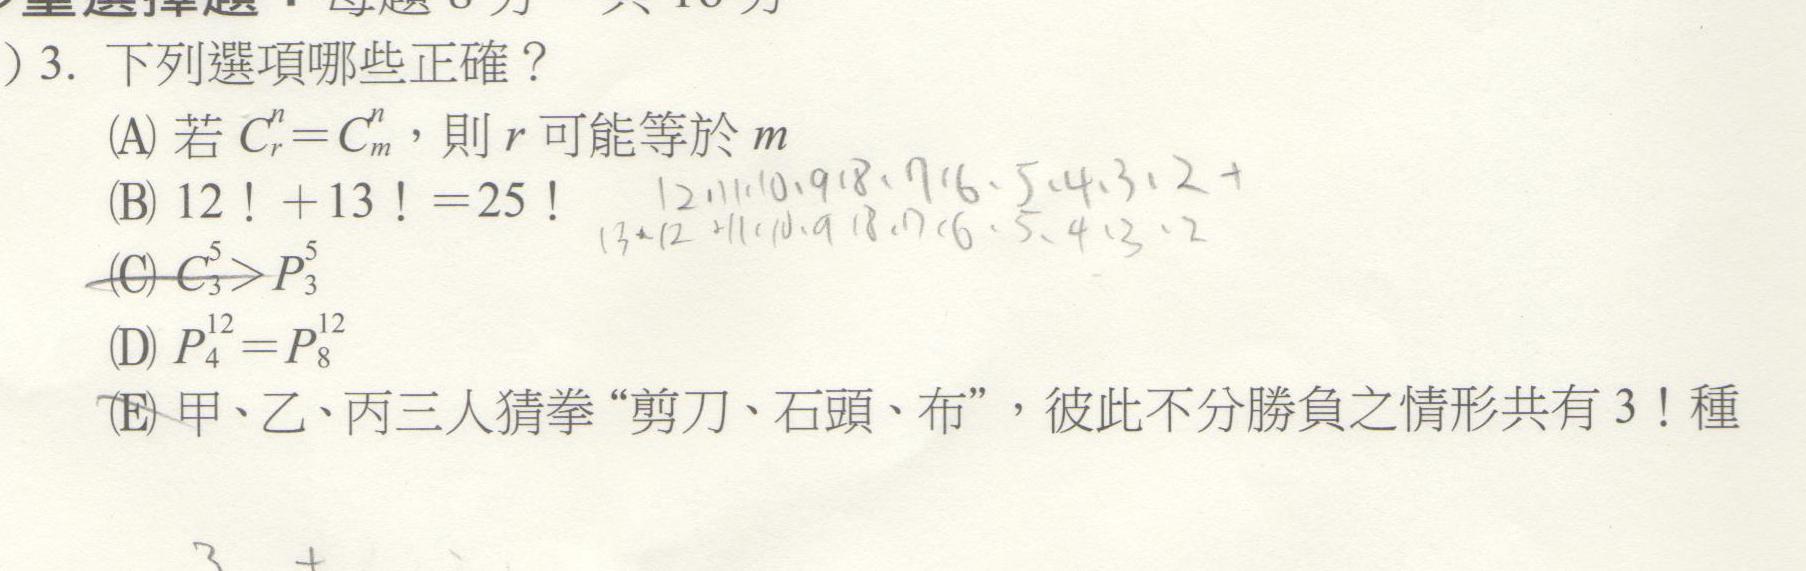 重選擇題：每題 8 分，共 16 分
) 3. 下列選項哪些正確？
(A) 若 Cⁿᵣ=Cⁿₘ，則 r 可能等於 m
(B) 12！＋13！＝25！
12·11·10·9·8·7·6·5·4·3·2+
13·12·11·10·9·8·7·6·5·4·3·2
(C) C⁵₃＞P⁵₃
(D) P¹²₄＝P¹²₈
(E) 甲、乙、丙三人猜拳“剪刀、石頭、布”，彼此不分勝負之情形共有 3！種
3 +